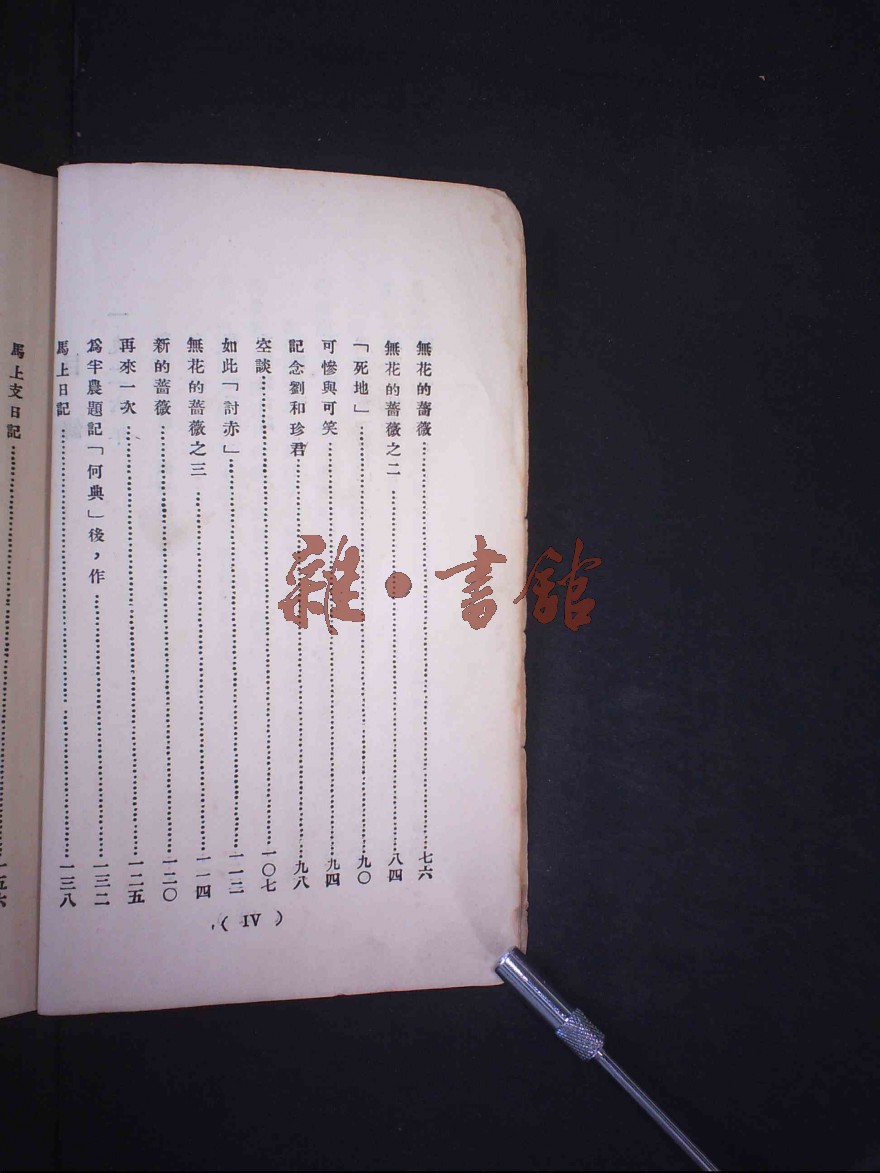 無花的薔薇……………………七六
無花的薔薇之二……………………八四
「死地」……………………九〇
可慘與可笑……………………九四
記念劉和珍君……………………九八
空談……………………一〇七
如此「討赤」……………………一一二
無花的薔薇之三……………………一一四
新的薔薇……………………一二〇
再來一次……………………一二五
爲半農題記「何典」後，作……………………一三二
馬上日記……………………一三八
( IV )
馬上支日記……………………一五六
雜·書館